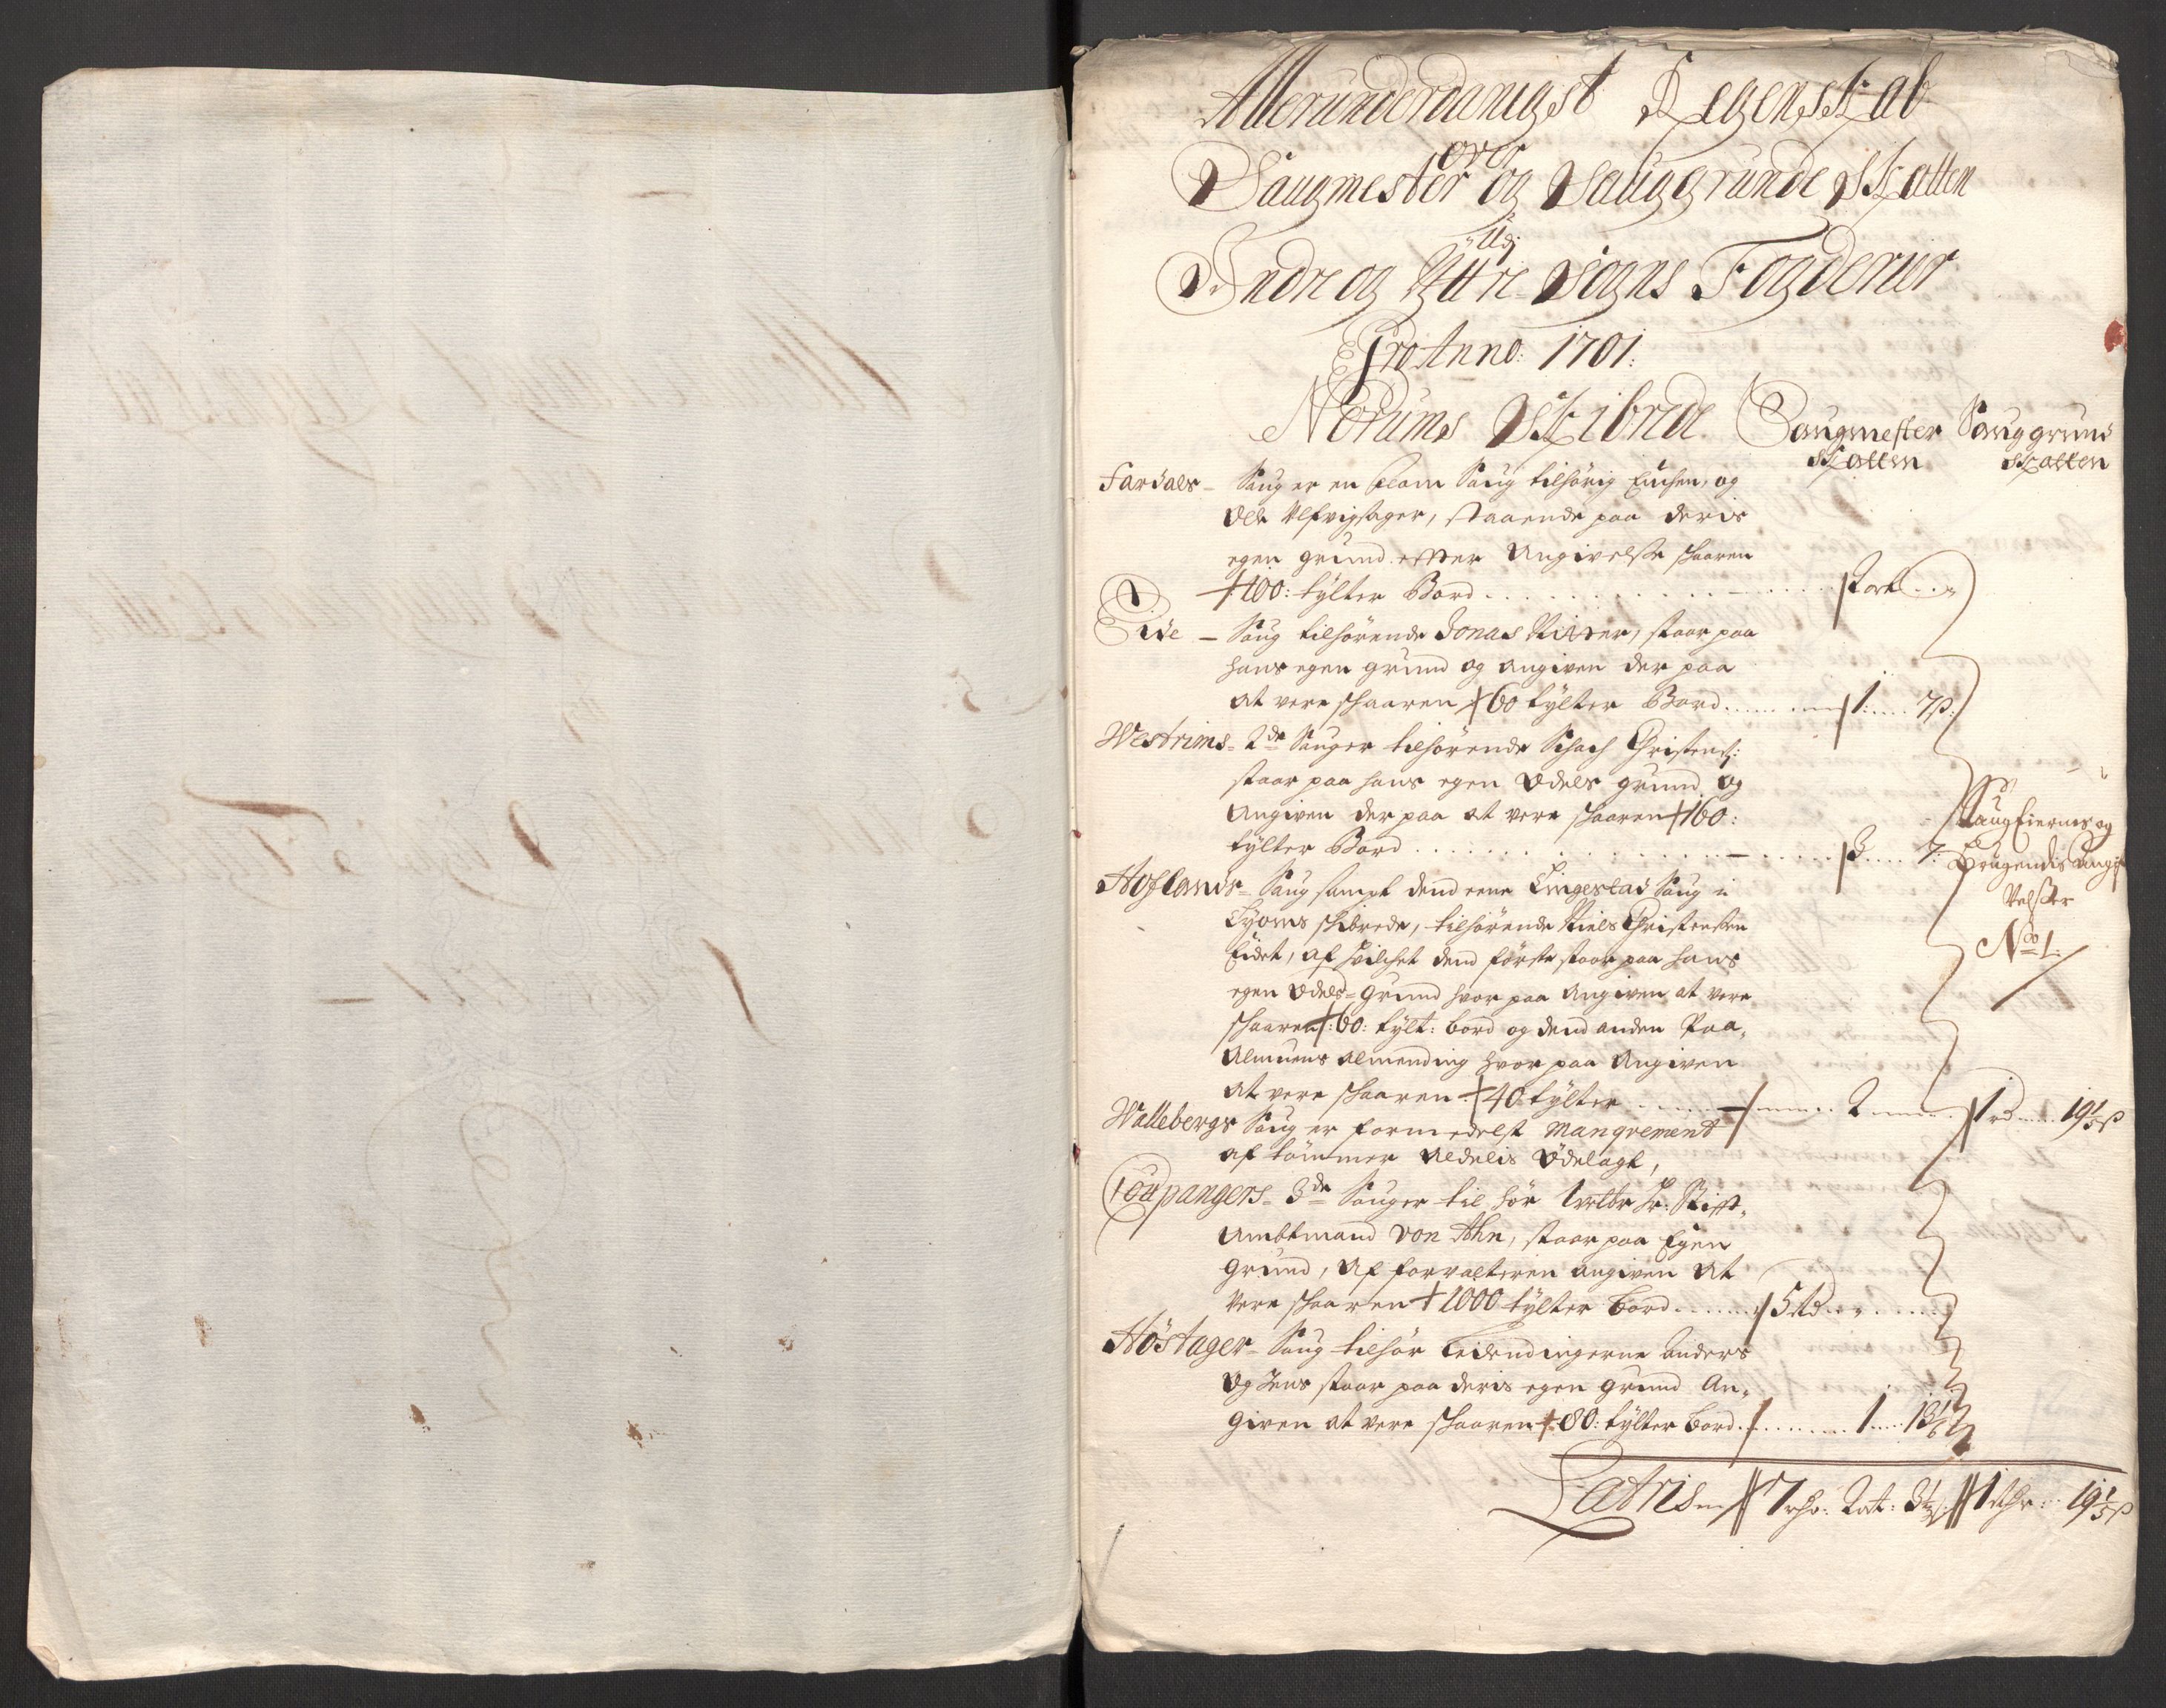 Allerunderdanigst Regenskab
over
Saugmester og Sauggrunde Skatten
udj
Indre og Yttre Sogns Fogderier
Pro Anno: 1701:
Norums Skibrede Saugmester Sauggrund
Skatten Skatten
Fardals - Saug er en flom Saug tilhörig Enchen, og
Ole staaende paa deris
egen grund effter Angivelse skaaren
100: tylter Bord
Eide - Saug tilhörende Jonas Ritter, staar paa
hans egen grund og angiven der paa
at vere skaaren 60 tylter Bord 1: 7 s:
Westrims - 2de Sauger tilhörende Schach Christens:
staar paa hans egen Odels grund og
Angiven der paa at vere skaaren 160:
tylter Bord 3 7:
Saug Eiernes og
Brugendis Angif
velsser
No 1:
Hoflands - Saug sampt dend eene Lingestad Saug i
Lyoms skibrede, tilhörende Niels Christensen
Eidet, af hvilchet dend förste staar paa hans
egen Odels-Grund hvor paa Angiven at vere
skaaren 60: tylt: bord og dend anden Paa
Almuens Almending hvor paa Angiven
at vere skaaren 40 tylter 2 1 rd 19 1/5 s
Wallebergs Saug er formedelst Mangvement
af tömmer Aldelis Ödelagt,
Coupangers - 3de Sauger til hör Welbr Hr: Stifft
Ambtmand von Ahn, staar paa Egen
Grund, Af forvalteren angiven At
Vere skaaren 1000 tylter bord 5 rd
Höstager - Saug tilhör Leidendingerne Anders
Og Jens staar paa deris egen Grund An,
given at vere skaaren 80: tylter bord 1 13 1/
Latris 7 rhr: 2 ort: 3 1/ 1 rthr: 19 1/5 s